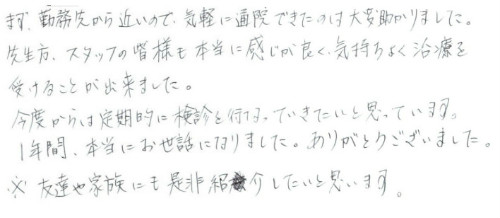 まず、勤務先から近いので、気軽に通院できたのは大変助かりました。
先生方、スタッフの皆様も本当に感じが良く、気持ちよく治療を
受けることが出来ました。
今度からは定期的に検診を行なっていきたいと思っています。
1年間、本当にお世話になりました。ありがとうございました。
※ 友達や家族にも是非紹介したいと思います。